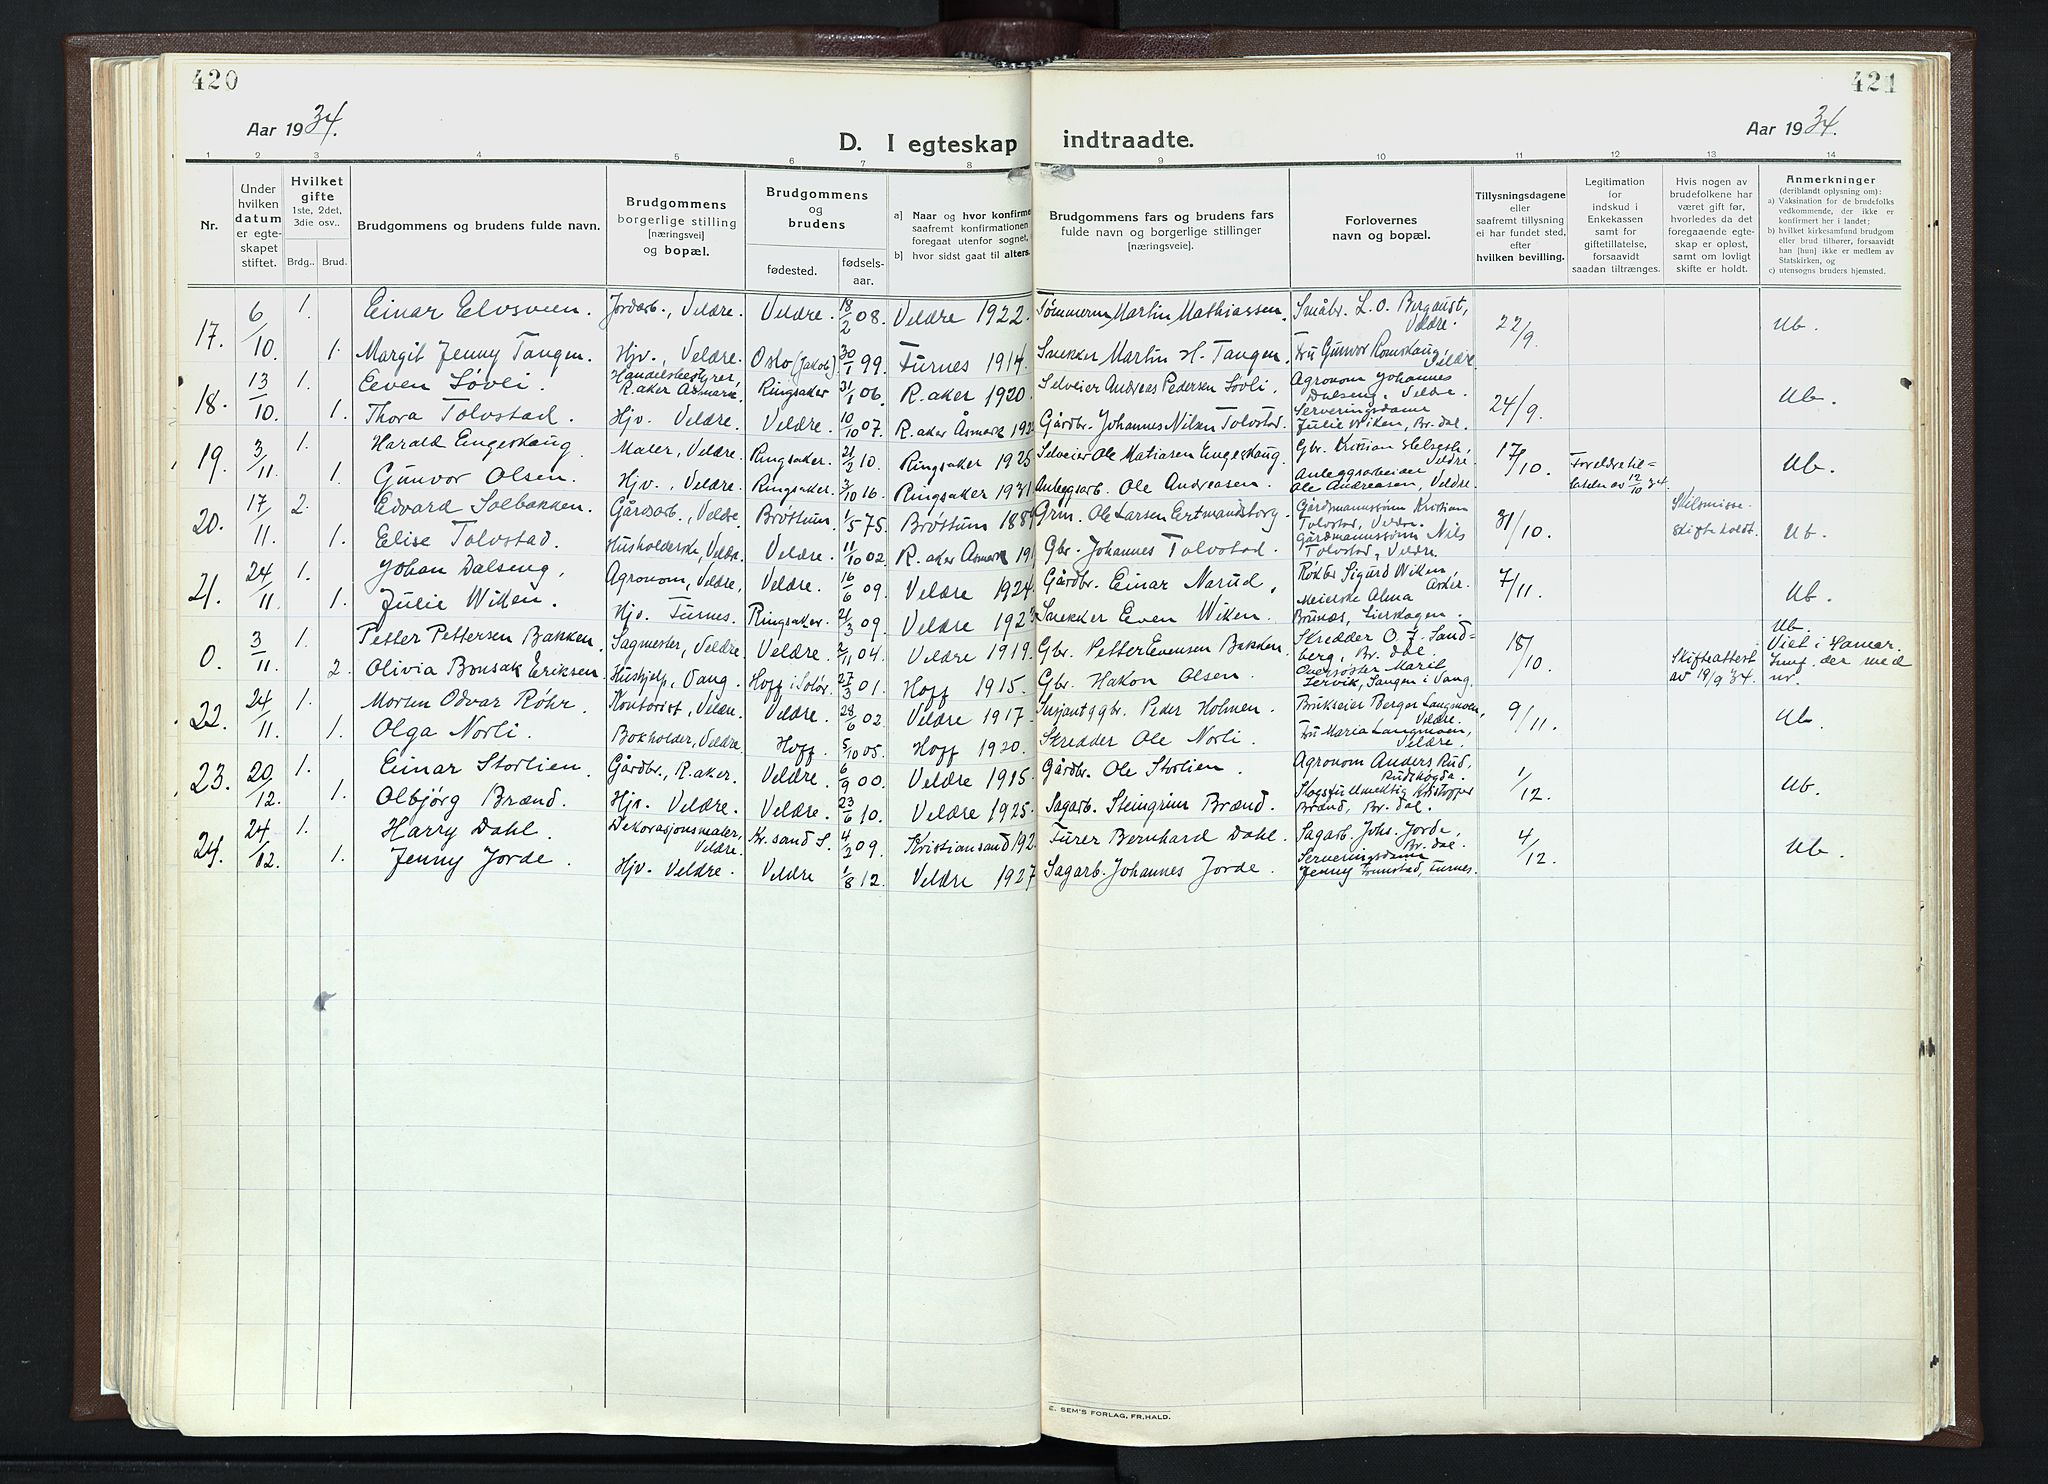 420
421
Aar 1934.
D. I egteskap indtraadte.
Aar 1934.
1 2 3 4 5 6 7 8 9 10 11 12 13 14
Nr.
Under hvilken datum er egteskapet stiftet.
Hvilket gifte 1ste, 2det, 3die osv..
Brdg.. Brud.
Brudgommens og brudens fulde navn.
Brudgommens borgerlige stilling [næringsvei] og bopæl.
Brudgommens og brudens
fødested. fødselsaar.
a] Naar og hvor konfirme
saafremt konfirmationen
foregaat utenfor sognet,
b] hvor sidst gaat til alters.
Brudgommens fars og brudens fars
fulde navn og borgerlige stillinger
[næringsveie].
Forlovernes
navn og bopæl.
Tillysningsdagene
eller
saafremt tillysning
ei har fundet sted,
efter
hvilken bevilling.
Legitimation
for
indskud i
Enkekassen
samt for
giftetillatelse,
forsaavidt
saadan tiltrænges.
Hvis nogen av
brudefolkene har
været gift før,
hvorledes da det
foregaaende egte-
skap er opløst,
samt om lovligt
skifte er holdt.
Anmerkninger
(deriblandt oplysning om):
a) Vaksination for de brudefolks
vedkommende, der ikke er
konfirmert her i landet;
b) hvilket kirkesamfund brudgom
eller brud tilhører, forsaavidt
han [hun] ikke er medlem av
Statskirken, og
c) utensogns bruders hjemsted.
17. 6/10 1. Einar Elvsveen. Jordarb., Veldre. Veldre. 18/2 08. Veldre 1922. Tømmerm. Martin Mathiassen. Småbr. L. O. Bergquist, Veldre. 22/9 Ub.
1. Margit Jenny Tangen. Hjv., Veldre. Oslo (Jakob) 30/1 99 Furnes 1914. Snekker Martin H. Tangen Fru Gunvor Romskaug, Veldre
18. 13/10. 1. Even Løvli. Handelsbestyrer, R.aker Åsmark. Ringsaker 31/1 06. R.aker 1920. Selveier Andreas Pedersen Løvli. Agronom Johannes Dalseng, Veldre. 24/9. Ub.
1. Thora Tolvstad. Hjv. Veldre. Veldre. 10/10 07. R.aker Åsmark 192 Gårdbr. Johannes Nilsen Tolvstad. Serveringsdame Julie Wiken, Br.dal.
19. 3/11 1. Harald Engeskaug Maler, Veldre. Ringsaker. 21/2 10. Ringsaker 1925 Selveier Ole Matiasen Engeskaug. Gbr. Kristian Helseth, Veldre. 17/10. Foreldretil-latelse av 12/10 34. Ub.
1. Gunvor Olsen. Hjv., Veldre. Ringsaker. 3/10 16. Ringsaker 1931 Anleggsarb. Ole Andreasen. Anleggsarbeider Ole Andreasen, Veldre.
20. 17/11. 2. Edvard Solbakken. Gårdsarb., Veldre, Brøttum. 1/5 75. Brøttum 1889 Grm. Ole Larsen Ertmandsborg. Gårdmannssønn Kristian Tolvstad, Veldre. 31/10. Skilsmisse. Skifte holdt. Ub.
1. Elise Tolvstad. Husholderske, Veldre. Veldre. 11/10 02. R.aker Åsmark 191 Gbr. Johannes Tolvstad. Gårdmannssønn Nils Tolvstad, Veldre.
21. 24/11. 1. Johan Dalseng, Agronom, Veldre, Veldre. 16/6 09. Veldre 1924. Gårdbr. Einar Narud, Sigurd Wiken, Asker. 7/11. Ub.
1. Julie Wiken. Hjv. Furnes. Ringsaker. 21/3 09. Veldre 1923 Snekker Even Wiken. Meierske Alma Brunæs,
0. 3/11. 1. Petter Pettersen Bakken. Sagmester, Veldre. Veldre. 2/11 04. Veldre 1919. Gbr. Petter Evensen Bakken. Skredder O. J. Sand-berg, Br. dal. 18/10. Ub. Viet i Hamar.
2. Olivia Bonsak Eriksen. Hushjelp, Vang. Hoff i Solør. 27/3 01. Hoff 1915. Gbr. Hakon Olsen. Oversøster Marit Lervik, Sangen i Vang. Skifteattest av 19/9 34. der med nr.
22. 24/11. 1. Morten Odvar Röhr. Kontorist, Veldre. Veldre. 28/6 02. Veldre 1917. Sersjant, gbr. Peder Holmen. Brukseier Berger Langmoen, Veldre. 9/11. Ub.
1. Olga Norli. Bokholder, Veldre. Hoff. 5/10 05. Hoff 1920. Skredder Ole Norli. Fru Maria Langmoen, Veldre.
23. 20/12. 1. Einar Storlien. Gårdbr., R.aker. Veldre. 6/9 00. Veldre 1915. Gårdbr. Ole Storlien. Agronom Anders Rud, Rudshøgda. 1/12. Ub.
1. Olbjørg Brænd. Hjv. Veldre. Veldre. 23/6 10. Veldre 1925. Sagarb. Steingrim Brænd. Skogsfullmektig Kristoffer Brænd, Br. dal.
24. 24/12. 1. Harry Dahl. Dekorasjonsmaler, Veldre. Kr.sand S. 4/2 09. Kristiansand 192 Furer Bernhard Dahl. Sagarb. Johs. Jorde, Br. dal. 4/12. Ub.
1. Jenny Jorde. Hjv. Veldre. Veldre 1/8 12. Veldre 1927 Sagarb. Johannes Jorde. Serveringsdame Jenny Furnes.
E. SEM'S FORLAG, FR.HALD.